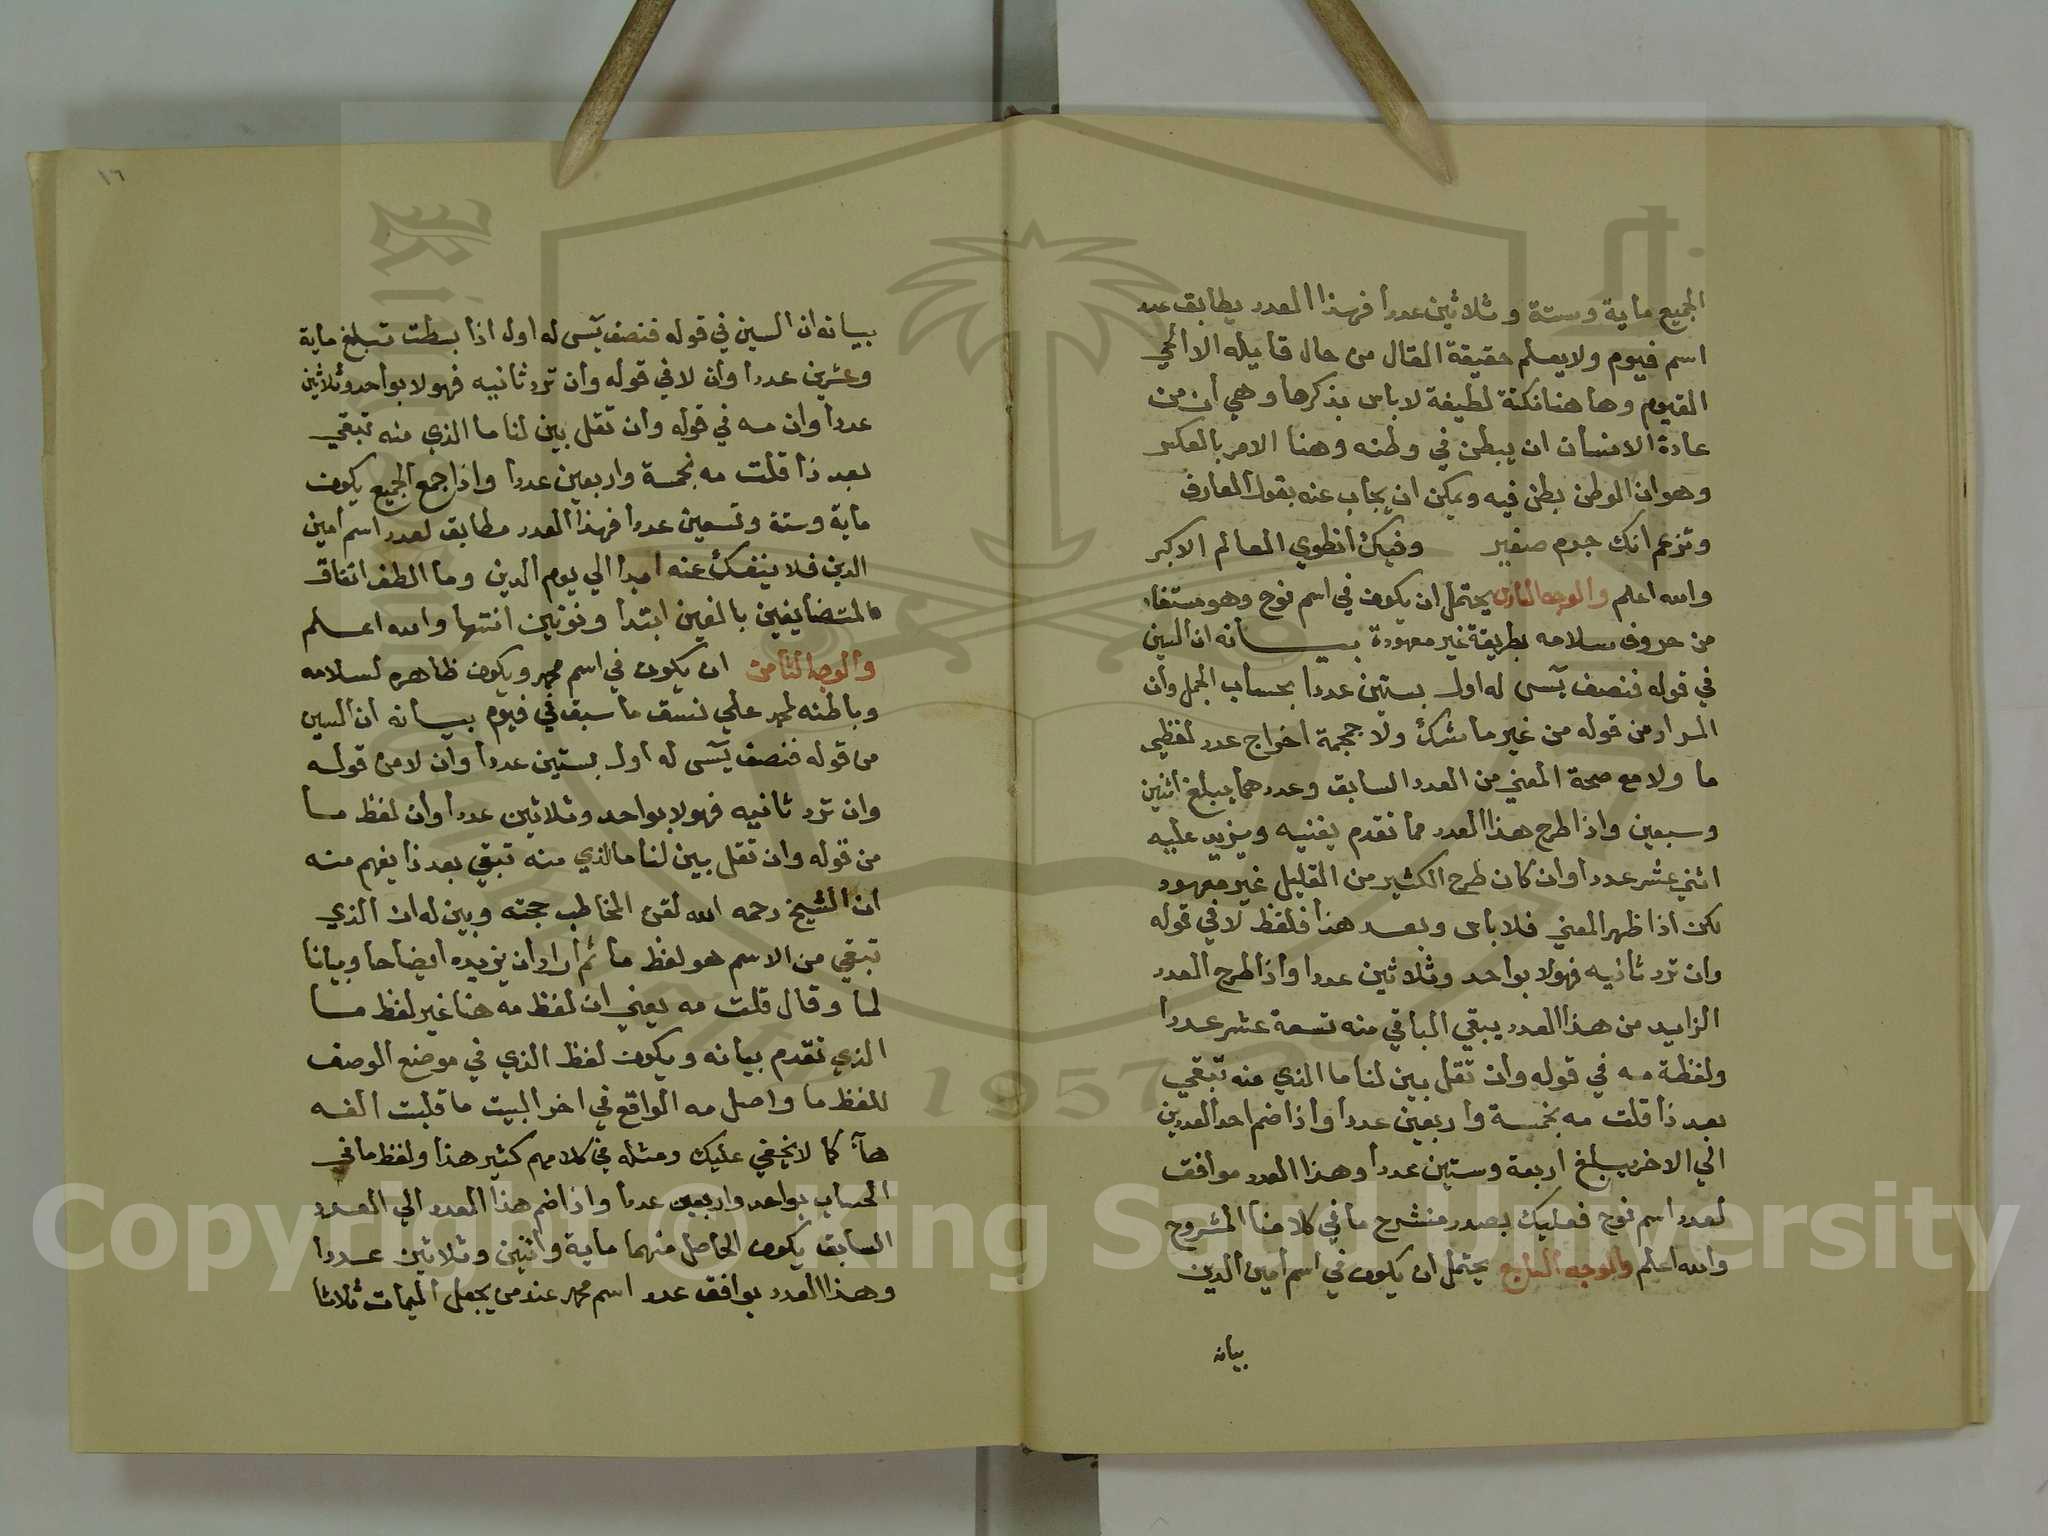 الجميع ماية وستة وثلاثين عددا فهذا العدد يطابق عدد
اسم فيوم ولا يعلم حقيقة المقال من حال قايله الا الحي
القيوم وها هنا نكتة لطيفة لا باس بذكرها وهي ان من
عادة الانسان ان يبطن في وطنه وهنا الامر بالعكس
وهو ان الوطن بطن فيه ويمكن ان يجاب عنه بقول العارف
وتزعم انك جرم صغير وفيك انطوي العالم الاكبر
والله اعلم والوجه السادس يحتمل ان يكون في اسم نوح وهو مستفاد
من حروف سلامه بطريقة غير معهودة بيانه ان السين
في قوله فنصف يس له اول بستين عددا بحساب الجمل وان
المراد من قوله من غير ما شك ولا جمجمة اخراج عدد لفظي
ما ولا مع صحة المعني من العدد السابق وعددهما يبلغ اثنين
وسبعين واذا طرح هذا العدد مما تقدم يفنيه ويزيد عليه
اثني عشر عددا وان كان طرح الكثير من القليل غير معهود
لكن اذا ظهر المعني فلا باس وبعد هذا فلفظ لا في قوله
وان ترد ثانيه فهو لا بواحد وثلاثين عددا واذا طرح العدد
الزايد من هذا العدد يبقي الباقي منه تسعة عشر عددا
ولفظة مه في قوله وان تقل بين لنا ما الذي منه تبقي
بعد ذا قلت مه بخمسة واربعين عددا واذا ضم احد العددين
الي الاخر يبلغ اربعة وستين عددا وهذا العدد موافق
لعدد اسم نوح فعليك بصدر منشرح ما في كلامنا المشروح
والله اعلم والوجه السابع يحتمل ان يكون في اسم امين الدين
بيانه
١٦
بيانه ان السين في قوله فنصف يس له اول اذا بسطت تبلغ ماية
وعشرين عددا وان لا في قوله وان ترد ثانيه فهو لا بواحد وثلاثين
عددا وان مه في قوله وان تقل بين لنا ما الذي منه تبقي
بعد ذا قلت مه بخمسة واربعين عددا واذا جمع الجميع يكون
ماية وستة وتسعين عددا فهذا العدد مطابق لعدد اسم امين
الدين فلا ينفك عنه ابدا الي يوم الدين وما الطف اتفاق
المتضايفين بالفين ابتدا ونونين انتها والله اعلم
والوجه الثامن ان يكون في اسم محمد ويكون ظاهره لسلامه
وباطنه لمحمد علي نسق ما سبق في فيوم بيانه ان السين
من قوله فنصف يس له اول بستين عددا وان لا من قوله
وان ترد ثانيه فهو لا بواحد وثلاثين عددا وان لفظ ما
من قوله وان تقل بين لنا ما الذي منه تبقي بعد ذا يفهم منه
ان الشيخ رحمه الله لقن المخاطب حجته وبين له ان الذي
تبقي من الاسم هو لفظ ما ثم اراد ان يزيده ايضاحا وبيانا
لما وقال قلت مه يعني ان لفظ مه هنا غير لفظ ما
الذي تقدم بيانه ويكون لفظ الذي في موضع الوصف
للفظ ما واصل مه الواقع في اخر البيت ما قلبت الفه
هآء كما لا يخفي عليك ومثله في كلامهم كثير هذا ولفظ ما في
الحساب بواحد واربعين عددا واذا ضم هذا العدد الي العدد
السابق يكون الحاصل منهما ماية واثنين وثلاثين عددا
وهذا العدد يوافق عدد اسم محمد عند من يجعل الميمات ثلاثا
1957
Copyright © King Saud University